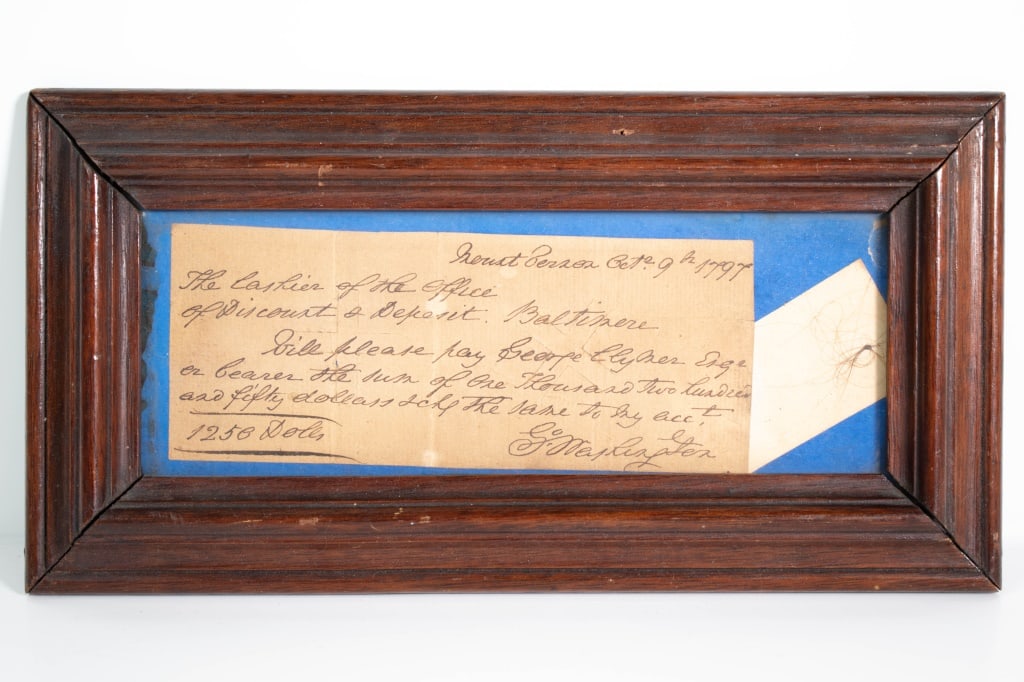 Mount Vernon Octr. 9th 1797
The Cashier of the Office
of Discount & Deposit. Baltimore
Will please pay George Clymer Esqr
or bearer the sum of One Thousand two hundred
and fifty dollars & chg the same to my acct.
1250 Dolls
Go. Washington